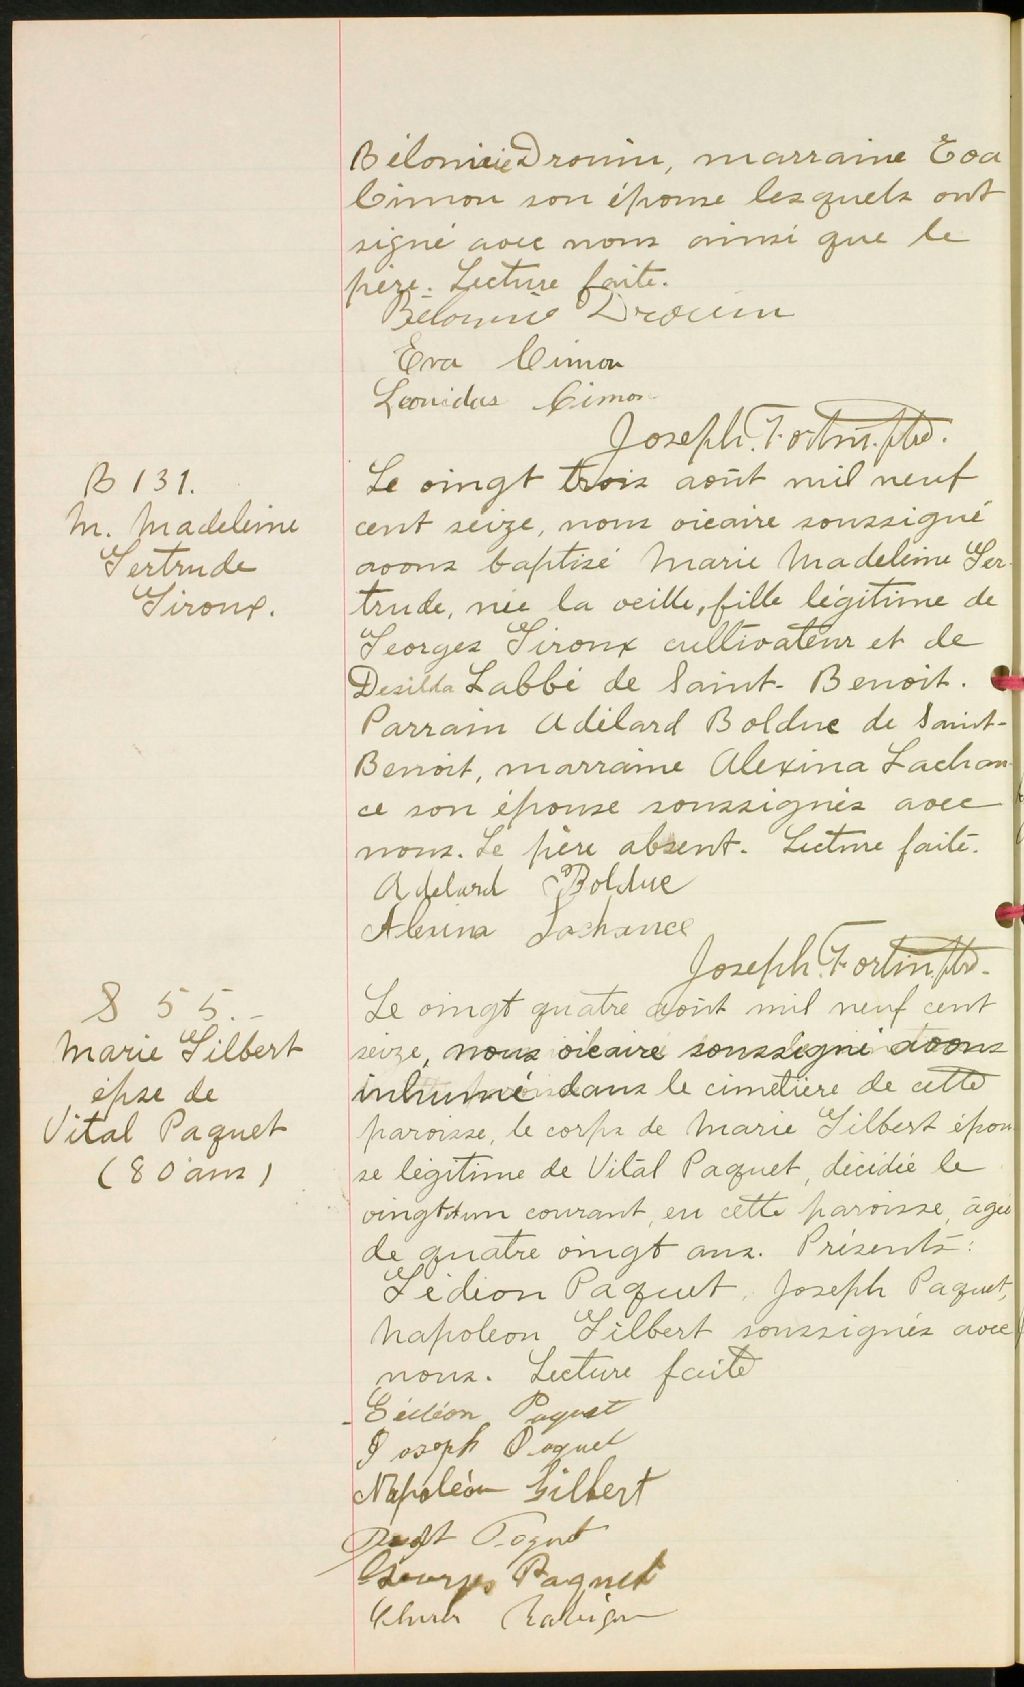 Béloni Drouin, marraine Eva
Cimon son épouse lesquels ont
signé avec nous ainsi que le
père. Lecture faite.
Drouin
Eva Cimon
Leonidas Cimon
Joseph. Fortin. ptre.
B 131.
M. Madeleine
Gertrude
Giroux.
Le vingt trois août mil neuf
cent seize, nous vicaire soussigné
avons baptisé Marie Madeleine Ger-
trude, née la veille, fille légitime de
Georges Giroux cultivateur et de
Desilda Labbé de Saint-Benoit.
Parrain Adélard Bolduc de Saint-
Benoit, marraine Alexina Lachan-
ce son épouse soussignés avec
nous. Le père absent. Lecture faite.
Adelard Bolduc
Alexina Lachance
Joseph. Fortin ptre.
S 55.-
Marie Gilbert
épse de
Vital Paquet
(80 ans)
Le vingt quatre août mil neuf cent
seize, nous vicaire soussigné avons
inhumé dans le cimetière de cette
paroisse, le corps de Marie Gilbert épou
se légitime de Vital Paquet, décédée le
vingt et un courant, en cette paroisse, âgée
de quatre vingt ans. Présents:
Gédéon Paquet, Joseph Paquet,
Napoleon Gilbert soussignés avec
nous. Lecture faite
Gédéon Paquet
Joseph Paquet
Napoléon Gilbert
Georges Paquet